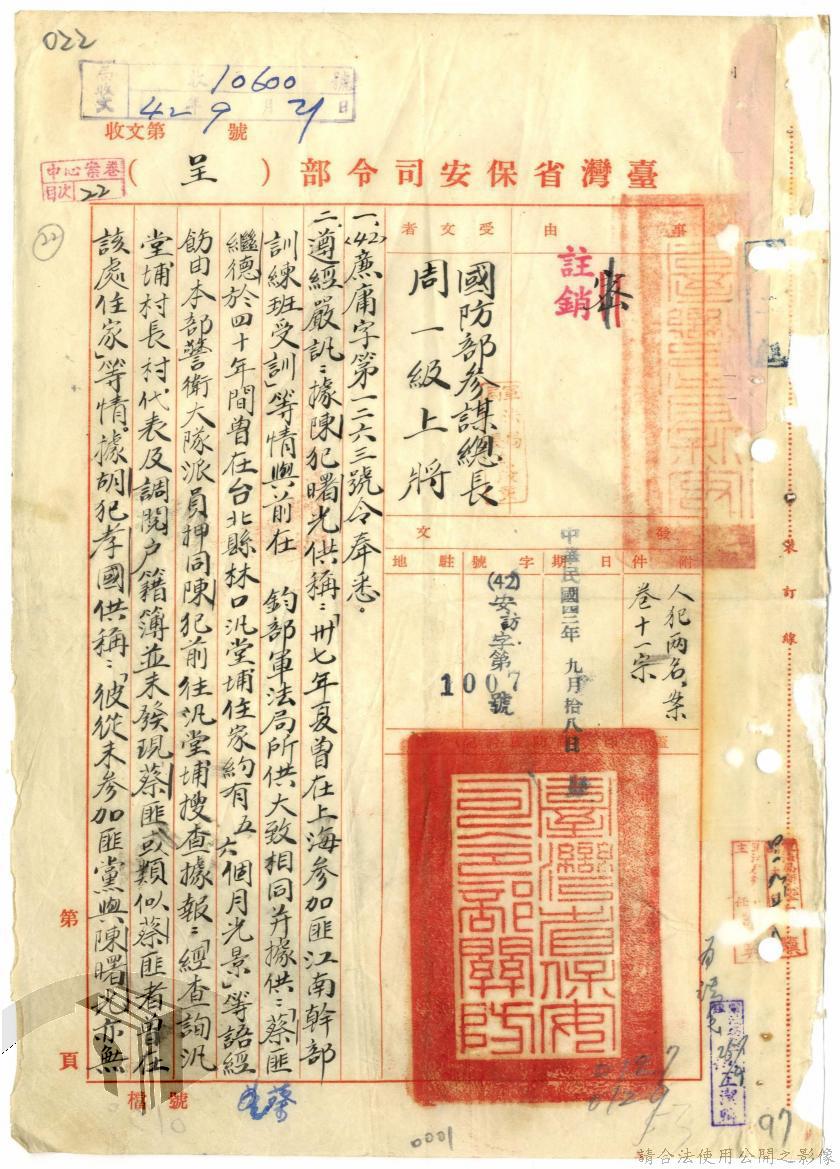 022
收 10600 號
42年9月21日
收文第 號
中心案卷
目次 22
臺灣省保安司令部（呈）
22
事由
密
註銷
受文者
國防部參謀總長
周一級上將
附件
人犯兩名、案
卷十一宗
發文
日期
中華民國四二年 九月拾八日
字號
(42)安訪字第
1007號
駐地
臺灣省保安司令部關防
一、(42)廉庸字第一二六三號令奉悉．
二、遵經嚴訊：據陳犯曙光供稱：「卅七年夏曾在上海參加匪江南幹部
訓練班受訓」等情與前在 鈞部軍法局所供大致相同并據供：「蔡匪
繼德於四十年間曾在台北縣林口汎堂埔住家約有五六個月光景」等語經
飭由本部警衛大隊派員押同陳犯前往汎堂埔搜查據報：經查詢汎
堂埔村長村代表及調閱戶籍簿並未發現蔡匪或類似蔡匪者曾在
該處住家」等情。據胡犯孝國供稱：「彼從未參加匪黨與陳曙光亦無
第 頁
檔號
裝訂線
0127
0129
97
0001
請合法使用公開之影像